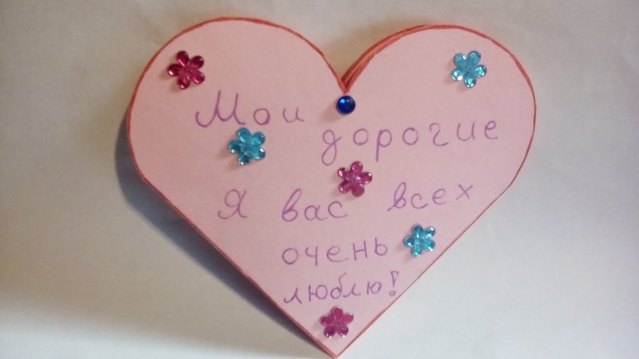 Мои
дорогие
Я вас всех
очень
люблю!